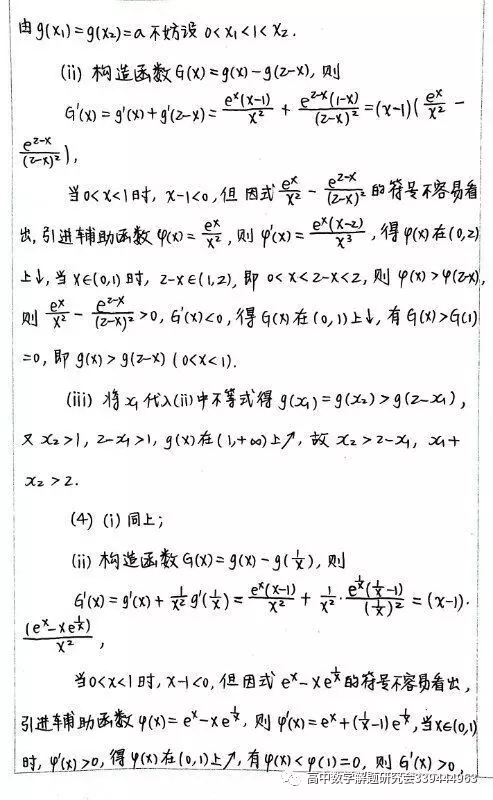 由g(x₁)=g(x₂)=a不妨设 0<x₁<1<x₂.
(ii) 构造函数G(x)=g(x)-g(2-x), 则
G'(x)=g'(x)+g'(2-x)=\frac{e^x(x-1)}{x^2}+\frac{e^{2-x}(1-x)}{(2-x)^2}=(x-1)(\frac{e^x}{x^2}-
\frac{e^{2-x}}{(2-x)^2}),
当0<x<1时, x-1<0, 但因式\frac{e^x}{x^2}-\frac{e^{2-x}}{(2-x)^2}的符号不容易看
出, 引进辅助函数φ(x)=\frac{e^x}{x^2}, 则φ'(x)=\frac{e^x(x-2)}{x^3}, 得φ(x)在(0,2)
上↓, 当x∈(0,1)时, 2-x∈(1,2), 即0<x<2-x<2, 则φ(x)>φ(2-x),
则\frac{e^x}{x^2}-\frac{e^{2-x}}{(2-x)^2}>0, G'(x)<0, 得G(x)在(0,1)上↓, 有G(x)>G(1)
=0, 即g(x)>g(2-x) (0<x<1).
(iii) 将x₁代入(ii)中不等式得g(x₁)=g(x₂)>g(2-x₁),
又x₂>1, 2-x₁>1, g(x)在(1,+∞)上↗, 故x₂>2-x₁, x₁+
x₂>2.
(4) (i) 同上;
(ii) 构造函数G(x)=g(x)-g(\frac{1}{x}), 则
G'(x)=g'(x)+\frac{1}{x^2}g'(\frac{1}{x})=\frac{e^x(x-1)}{x^2}+\frac{1}{x^2}·\frac{e^{\frac{1}{x}}(\frac{1}{x}-1)}{(\frac{1}{x})^2}=(x-1)·
\frac{(e^x-xe^{\frac{1}{x}})}{x^2},
当0<x<1时, x-1<0, 但因式e^x-xe^{\frac{1}{x}}的符号不容易看出,
引进辅助函数φ(x)=e^x-xe^{\frac{1}{x}}, 则φ'(x)=e^x+(\frac{1}{x}-1)e^{\frac{1}{x}}, 当x∈(0,1)
时, φ'(x)>0, 得φ(x)在(0,1)上↗, 有φ(x)<φ(1)=0, 则G'(x)>0,
高中数学解题研究会339444963